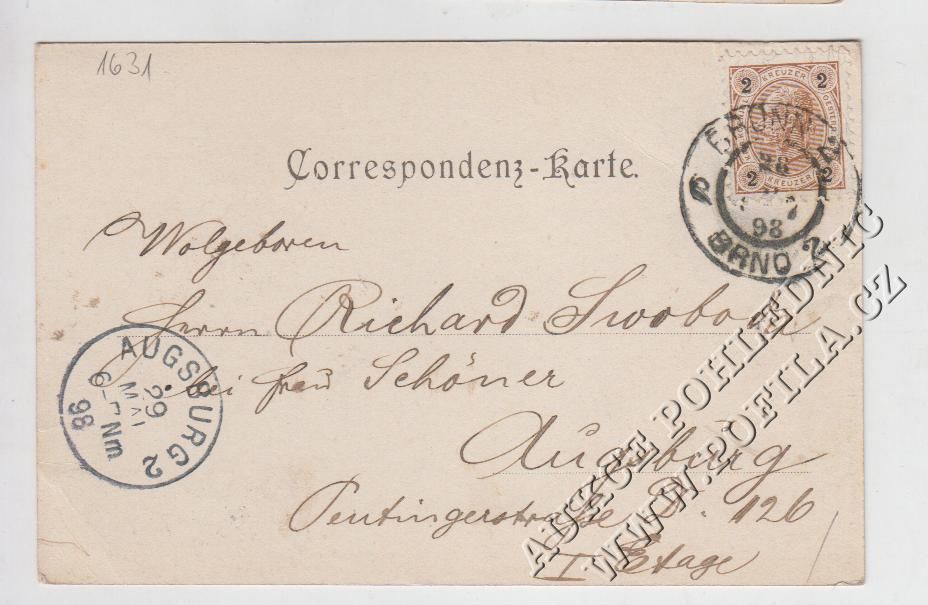 1631
2 KREUZER 2
2 KREUZER 2
BRÜNN
28
98
BRNO 2
Correspondenz-Karte.
Wolgeboren
Herrn Richard Swoboda
bei Frau Schöner
Augsburg
Peutingerstraße D. 126
I Etage
AUGSBURG 2
29
MAI
6-7Nm
98
AUKCE POHLEDNIC
WWW.POFILA.CZ